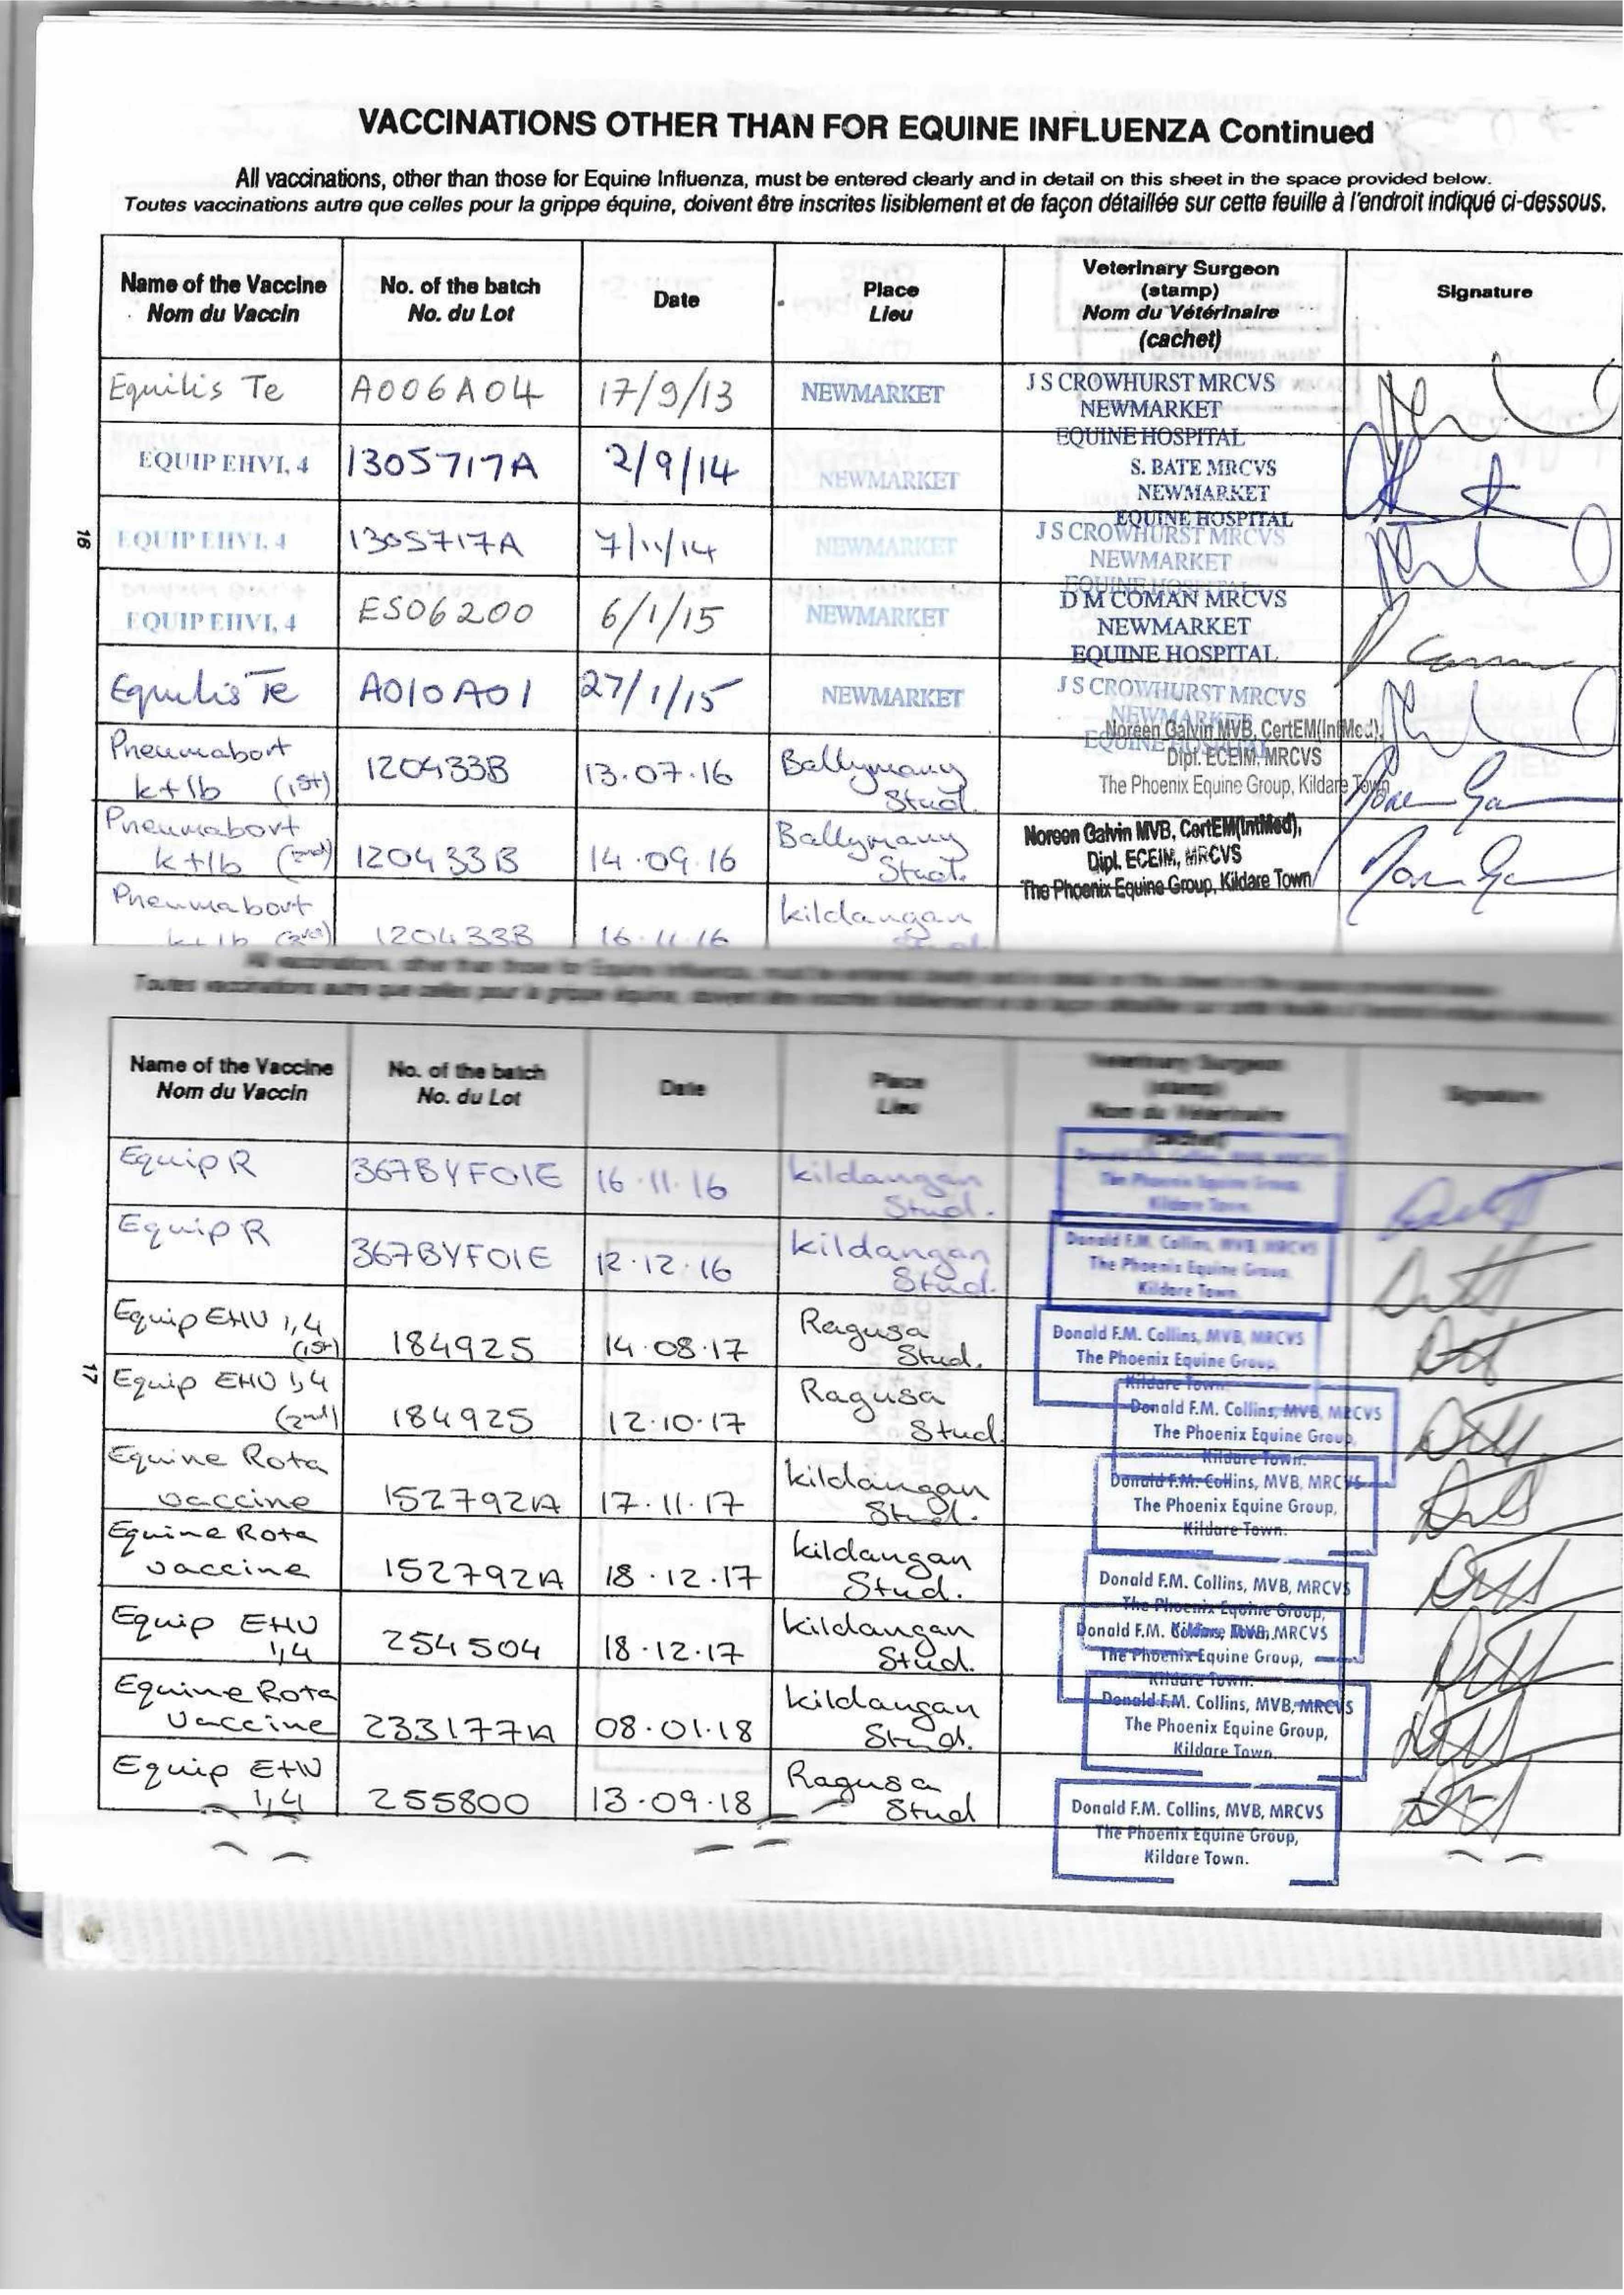 VACCINATIONS OTHER THAN FOR EQUINE INFLUENZA Continued
All vaccinations, other than those for Equine Influenza, must be entered clearly and in detail on this sheet in the space provided below.
Toutes vaccinations autre que celles pour la grippe équine, doivent être inscrites lisiblement et de façon détaillée sur cette feuille à l'endroit indiqué ci-dessous.
Name of the Vaccine
Nom du Vaccin
No. of the batch
No. du Lot
Date
Place
Lieu
Veterinary Surgeon
(stamp)
Nom du Vétérinaire
(cachet)
Signature
Equilis Te A006A04 17/9/13 NEWMARKET
J S CROWHURST MRCVS
NEWMARKET
EQUINE HOSPITAL
EQUIP EHVI, 4 1305717A 2/9/14 NEWMARKET
S. BATE MRCVS
NEWMARKET
EQUINE HOSPITAL
16
EQUIP EHVI, 4 1305717A 7/11/14 NEWMARKET
J S CROWHURST MRCVS
NEWMARKET
EQUINE HOSPITAL
EQUIP EHVI, 4 ES06200 6/1/15 NEWMARKET
D M COMAN MRCVS
NEWMARKET
EQUINE HOSPITAL
Equilis Te A010A01 27/1/15 NEWMARKET
J S CROWHURST MRCVS
NEWMARKET
EQUINE HOSPITAL
Pneumabort
k+1b (1st) 120433B 13.07.16 Ballymany
Stud.
Noreen Galvin MVB, CertEM(IntMed),
Dipl. ECEIM, MRCVS
The Phoenix Equine Group, Kildare Town
Pneumabort
k+1b (2nd) 120433B 14.09.16 Ballymany
Stud.
Noreen Galvin MVB, CertEM(IntMed),
Dipl. ECEIM, MRCVS
The Phoenix Equine Group, Kildare Town
Pneumabort
k+1b (3rd) 120433B 16.11.16 kildangan
All vaccinations, other than those for Equine Influenza, must be entered clearly and in detail on this sheet in the space provided below.
Toutes vaccinations autre que celles pour la grippe équine, doivent être inscrites lisiblement et de façon détaillée sur cette feuille à l'endroit indiqué ci-dessous.
Name of the Vaccine
Nom du Vaccin
No. of the batch
No. du Lot
Date
Place
Lieu
Veterinary Surgeon
(stamp)
Nom du Vétérinaire
(cachet)
Signature
Equip R 367BYF01E 16.11.16 kildangan
Stud.
Donald F.M. Collins, MVB, MRCVS
The Phoenix Equine Group,
Kildare Town.
Equip R 367BYF01E 12.12.16 kildangan
Stud.
Donald F.M. Collins, MVB, MRCVS
The Phoenix Equine Group,
Kildare Town.
Equip EHV 1,4
(1st) 184925 14.08.17 Ragusa
Stud.
Donald F.M. Collins, MVB, MRCVS
The Phoenix Equine Group,
Kildare Town.
17
Equip EHV 1,4
(2nd) 184925 12.10.17 Ragusa
Stud.
Donald F.M. Collins, MVB, MRCVS
The Phoenix Equine Group,
Kildare Town.
Equine Rota
vaccine 152792A 17.11.17 kildangan
Stud.
Donald F.M. Collins, MVB, MRCVS
The Phoenix Equine Group,
Kildare Town.
Equine Rota
vaccine 152792A 18.12.17 kildangan
Stud.
Donald F.M. Collins, MVB, MRCVS
The Phoenix Equine Group,
Kildare Town.
Equip EHV
1,4 254504 18.12.17 kildangan
Stud.
Donald F.M. Collins, MVB, MRCVS
The Phoenix Equine Group,
Kildare Town.
Equine Rota
vaccine 233177A 08.01.18 kildangan
Stud.
Donald F.M. Collins, MVB, MRCVS
The Phoenix Equine Group,
Kildare Town.
Equip EHV
1,4 255800 13.09.18 Ragusa
Stud
Donald F.M. Collins, MVB, MRCVS
The Phoenix Equine Group,
Kildare Town.